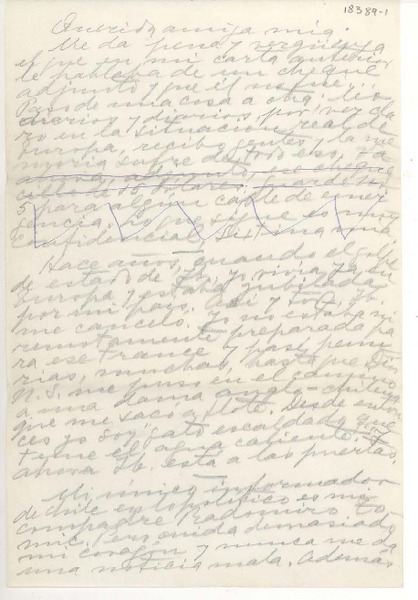 18389-1
Querida amiga mía:
Me da pena y vergüenza
el que en mi carta anterior
le hablaba de un cheque
adjunto y que él no fue.
Paso de una cosa a otra, leo
diarios y diarios, por ver cla
ro en la situación real de
Europa, recibo gentes y la me
moria sufre de todo eso. Va
ahora, adjunto, un cheque
5 para algún cable de emer
gencia. Lo que sigue es muy
confidencial.
Hace años, cuando el golpe
de estado de Ib. yo vivía ya en
Europa y estaba jubilada
por mi país. Casi y todo, Ib.
me canceló. Yo no estaba ni
remotamente preparada pa
ra ese trance y pasé penu
rias, muchas, hasta que Dios
N.S. me puso en el camino
a una dama anglo-chilena
que me sacó a flote. Desde enton
ces yo soy "gato escaldado que
teme el agua caliente". Y
ahora Ib. está a las puertas.
Mi único informador
de Chile en lo político es mi
compadre Radomiro To
mic. Pero cuida demasiado
mi corazón y nunca me da
una noticia mala. Además